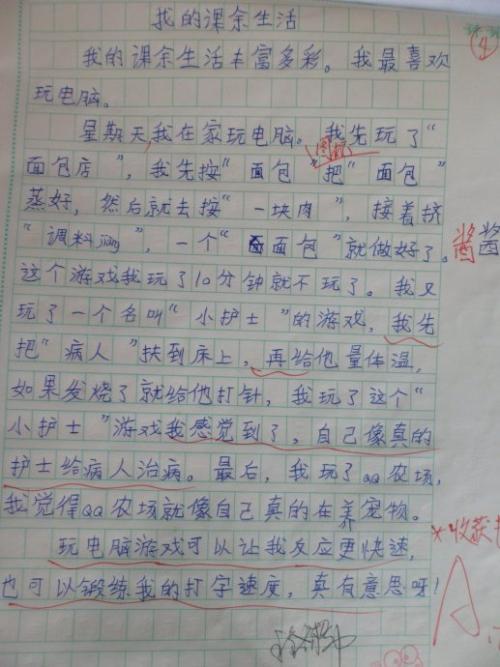 我的课余生活
我的课余生活丰富多彩。我最喜欢
玩电脑。
星期天,我在家玩电脑。我先玩了“
面包店”,我先按“面包”把“面包”
蒸好,然后就去按“一块肉”,接着挤
“调料”,一个“面包”就做好了。酱酱
这个游戏我玩了10分钟就不玩了。我又
玩了一个名叫“小护士”的游戏,我先
把“病人”扶到床上,再给他量体温,
如果发烧了就给他打针,我玩了这个“
小护士”游戏我感觉到了,自己像真的
护士给病人治病。最后,我玩了QQ农场,
我觉得QQ农场就像自己真的在养宠物。
*收获
玩电脑游戏可以让我反应更快速,
也可以锻练我的打字速度,真有意思呀!
A